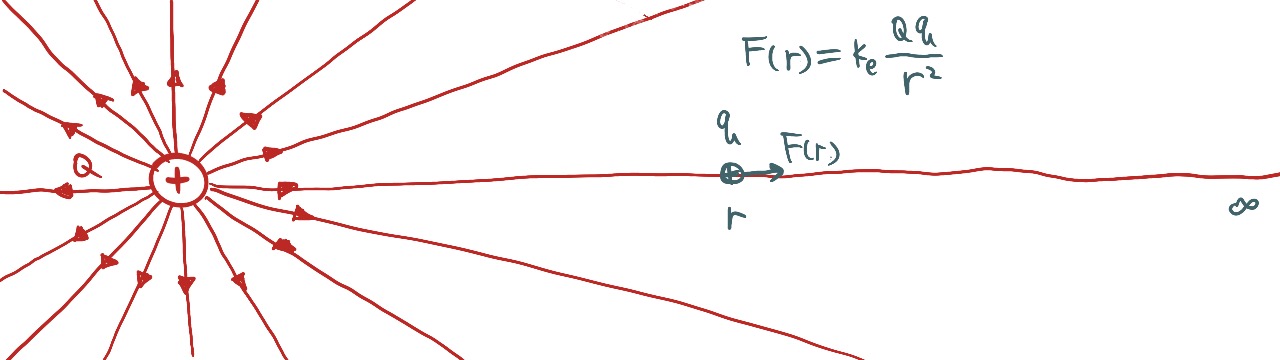 F(r) = kₑ Qq/r²
q
F(r)
Q
+
+
r
∞